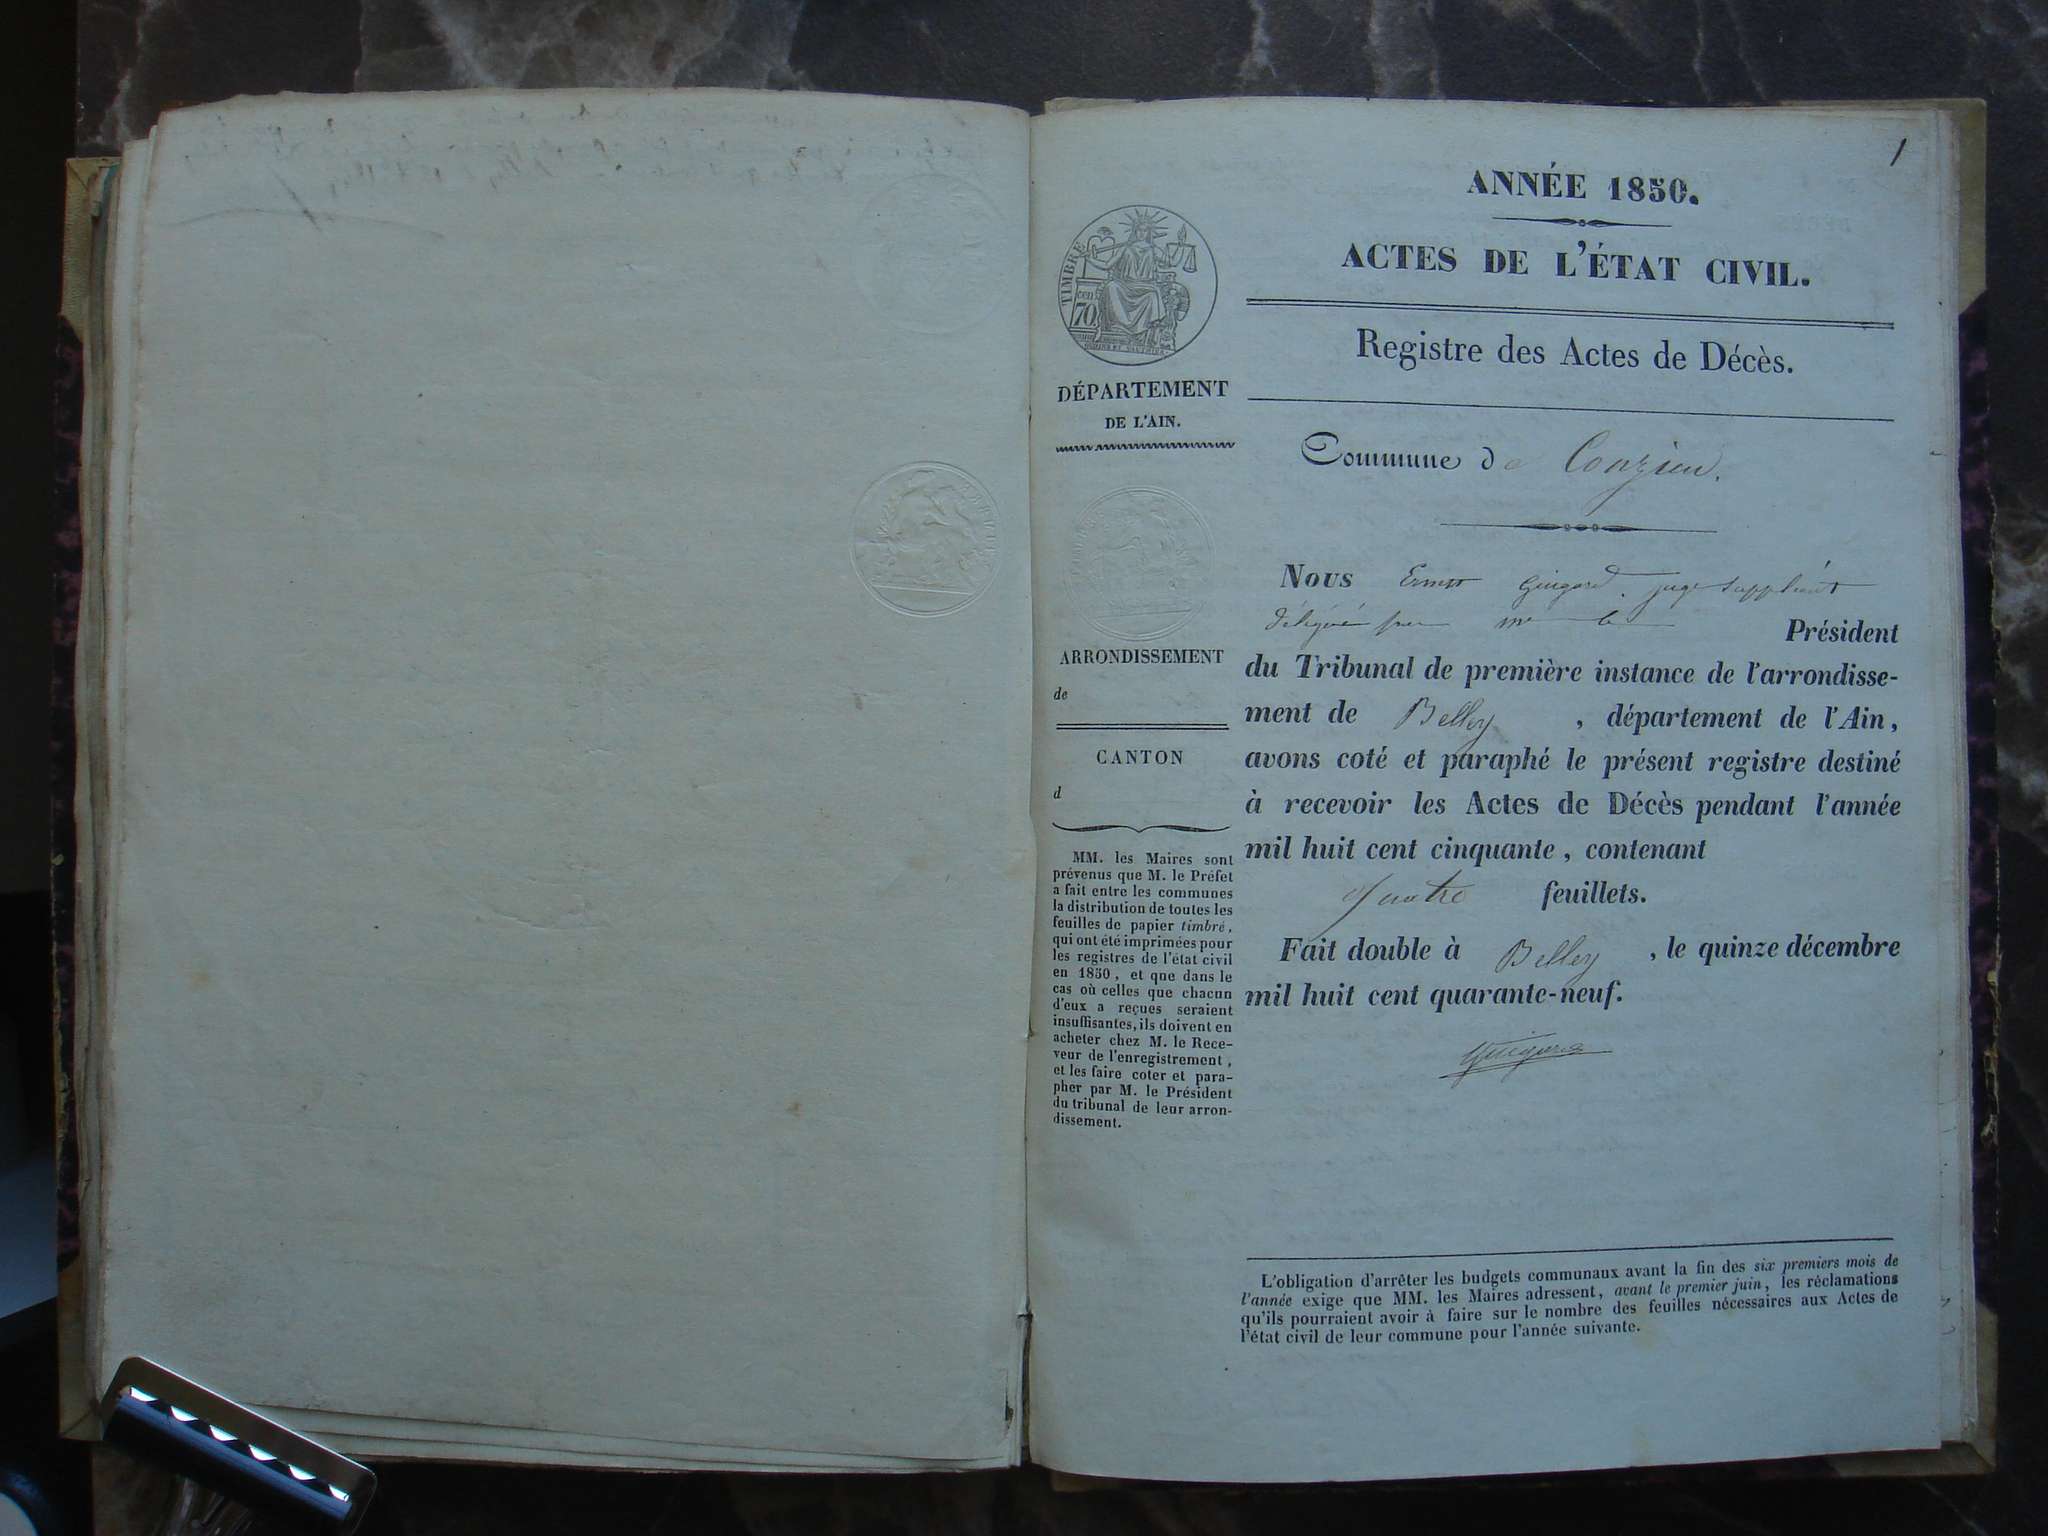 1
ANNÉE 1850.
ACTES DE L'ÉTAT CIVIL.
Registre des Actes de Décès.
Commune de Conzieu.
Nous Ernest Guigard, juge suppléant
délégué par Mr le Président
du Tribunal de première instance de l'arrondisse-
ment de Belley, département de l'Ain,
avons coté et paraphé le présent registre destiné
à recevoir les Actes de Décès pendant l'année
mil huit cent cinquante, contenant
quatre feuillets.
Fait double à Belley, le quinze décembre
mil huit cent quarante-neuf.
L'obligation d'arrêter les budgets communaux avant la fin des six premiers mois de
l'année exige que MM. les Maires adressent, avant le premier juin, les réclamations
qu'ils pourraient avoir à faire sur le nombre des feuilles nécessaires aux Actes de
l'état civil de leur commune pour l'année suivante.
TIMBRE
cen
70.
DÉPARTEMENT
DE L'AIN.
ARRONDISSEMENT
de
CANTON
d
MM. les Maires sont
prévenus que M. le Préfet
a fait entre les communes
la distribution de toutes les
feuilles de papier timbré,
qui ont été imprimées pour
les registres de l'état civil
en 1850, et que dans le
cas où celles que chacun
d'eux a reçues seraient
insuffisantes, ils doivent en
acheter chez M. le Rece-
veur de l'enregistrement,
et les faire coter et para-
pher par M. le Président
du tribunal de leur arron-
dissement.